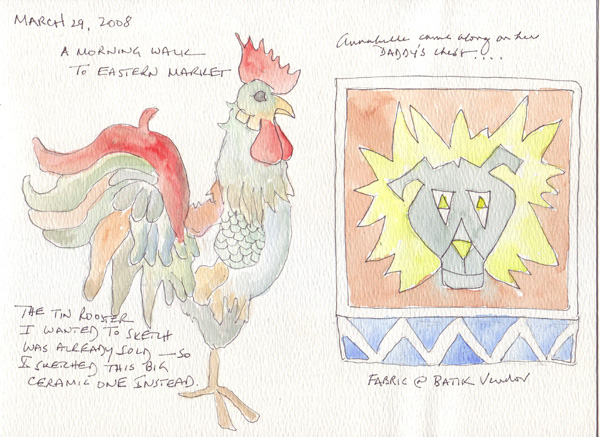 MARCH 29, 2008
A MORNING WALK
TO EASTERN MARKET
Annabelle came along on her
DADDY'S chest....
THE TIN ROOSTER
I WANTED TO SKETCH
WAS ALREADY SOLD — SO
I SKETCHED THIS BIG
CERAMIC ONE INSTEAD.
FABRIC @ BATIK Vendor